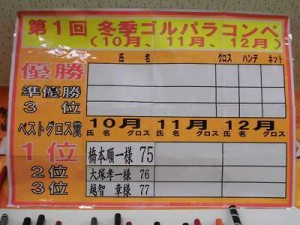 第1回 冬季ゴルパラコンペ
(10月、11月、12月)
氏 名 グロス ハンデ ネット
優勝
準優勝
3 位
ベストグロス賞 10月 11月 12月
氏 名 グロス 氏 名 グロス 氏 名 グロス
1位 橋本順一様 75
2位 大塚孝一様 76
3位 越智 章様 77